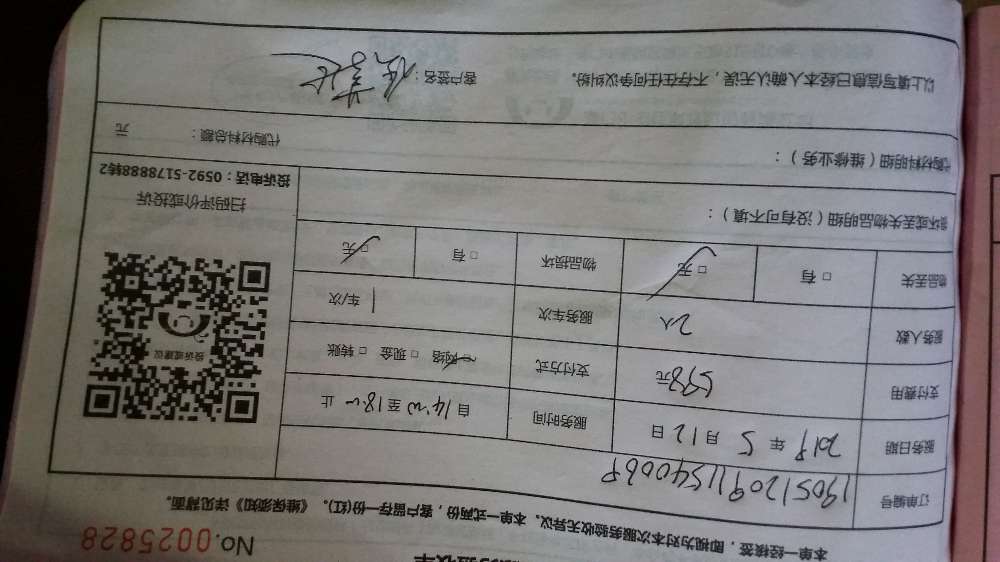 验收单
No.0025828
本单一经核签，即视为对本次服务验收无异议。本单一式两份，客户留存一份(红)。《维保须知》详见背面。
订单编号 190512091154006P
服务日期 2019 年 5 月 12 日 服务时间 自 14:00 至 18:00 止
支付费用 598元 支付方式 网络 □ 现金 □ 转账
服务人数 2人 服务车次 1 车/次
物品丢失 □ 有 □ 无 物品损坏 □ 有 □ 无
投诉或建议
扫码评价或投诉
投诉电话：0592-5178888转2
损坏或丢失物品明细（没有可不填）：
代购材料明细（维修业务）： 代购材料总额： 元
以上填写信息已经本人确认无误，不存在任何争议纠纷。 客户签名：